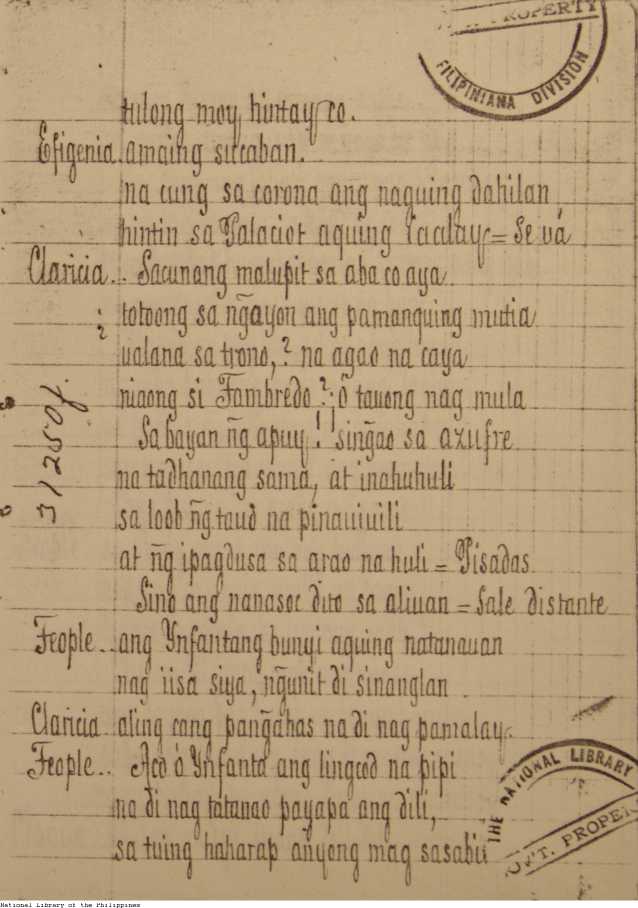 PROPERTY
FILIPINIANA DIVISION
tulong moy, hintay co.
Efigenia. amaing sucaban.
na cung sa corona ang naguing dahilan
hintin sa Palaciot aquing = Se vá
Claricia.. Sacunang malupit sa aba co aya
¿ totoong sa ñgayon ang pamanquing mutia
ualana sa trono, ? na agao na caya
niaong si Fambredo ?¡ ó tauong nag mula
Sa bayan ñg apuy ! singao sa azufre
na tadhanang sama, at inahuhuli
sa loob ñg taud na pinauiuili
at ñg ipagdusa sa arao na huli = Pisadas.
Sino ang nanasoc dito sa aliuan = Sale distante
Feople.. ang Ynfantang bunyi aquing natanauan
nag iisa siya, ñgunit di sinanglan.
Claricia aling cang pañgahas na di nag pamalay.
Feople.. Aco ó Ynfanta ang lingcod na pipi
na di nag tatanao payapa ang dili,
sa tuing haharap anyong mag sasabii
31250f.
THE NATIONAL LIBRARY
GOV'T. PROPE
National Library of the Philippines